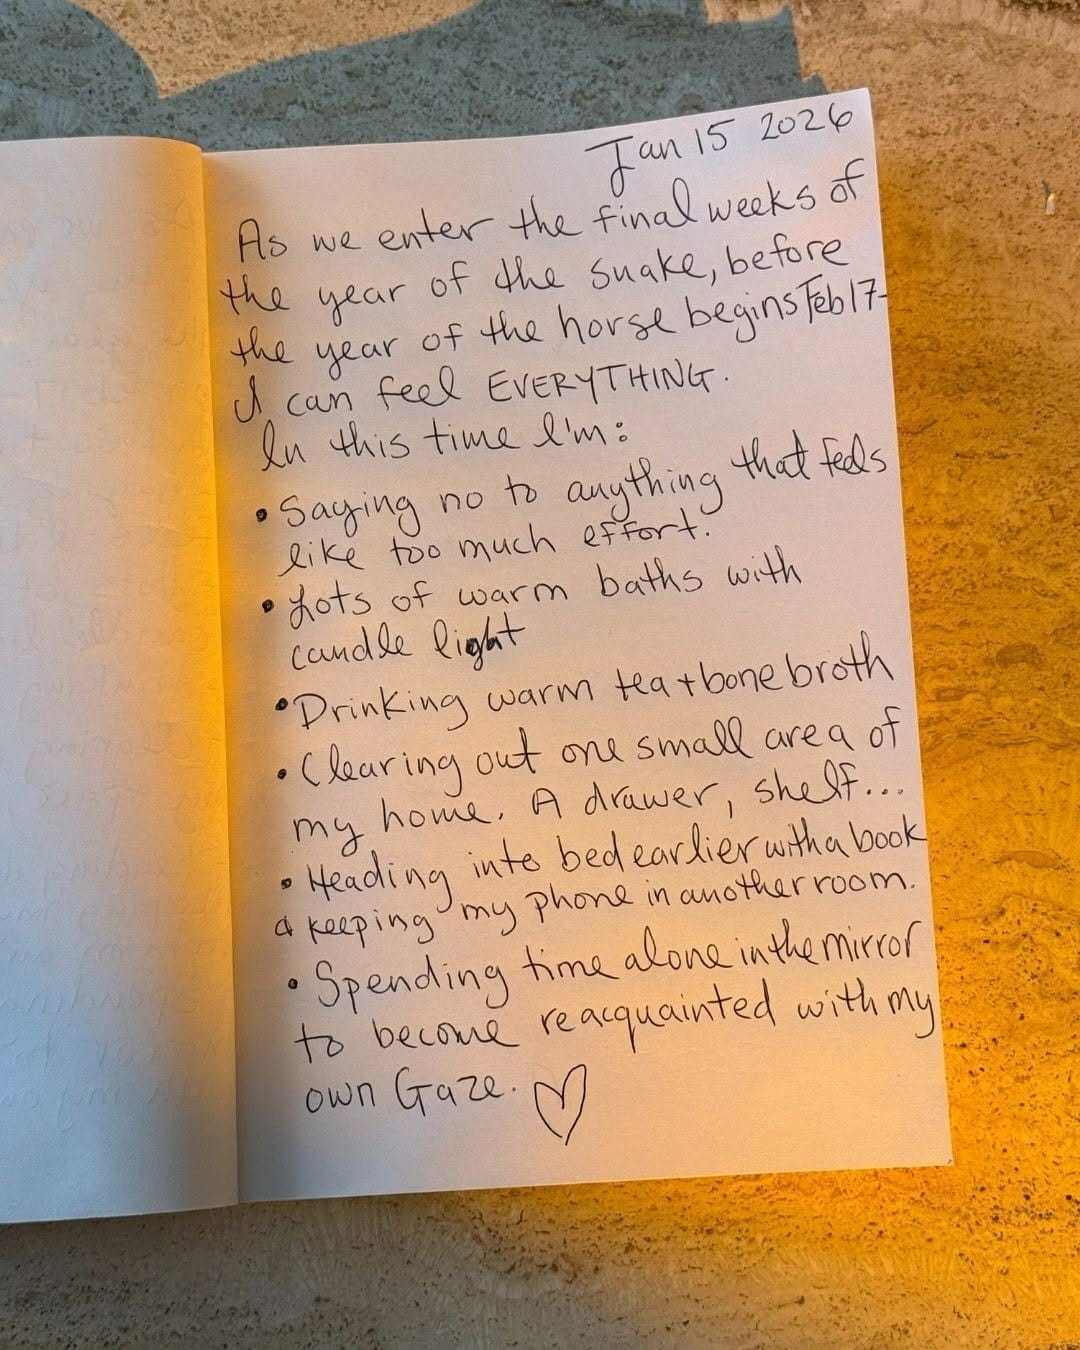 Jan 15 2026
As we enter the final weeks of
the year of the snake, before
the year of the horse begins Feb 17-
I can feel EVERYTHING.
In this time I'm:
• Saying no to anything that feels
like too much effort.
• Lots of warm baths with
candle light
• Drinking warm tea + bone broth
• Clearing out one small area of
my home. A drawer, shelf...
• Heading into bed earlier with a book
& keeping my phone in another room.
• Spending time alone in the mirror
to become reacquainted with my
own Gaze. ♡